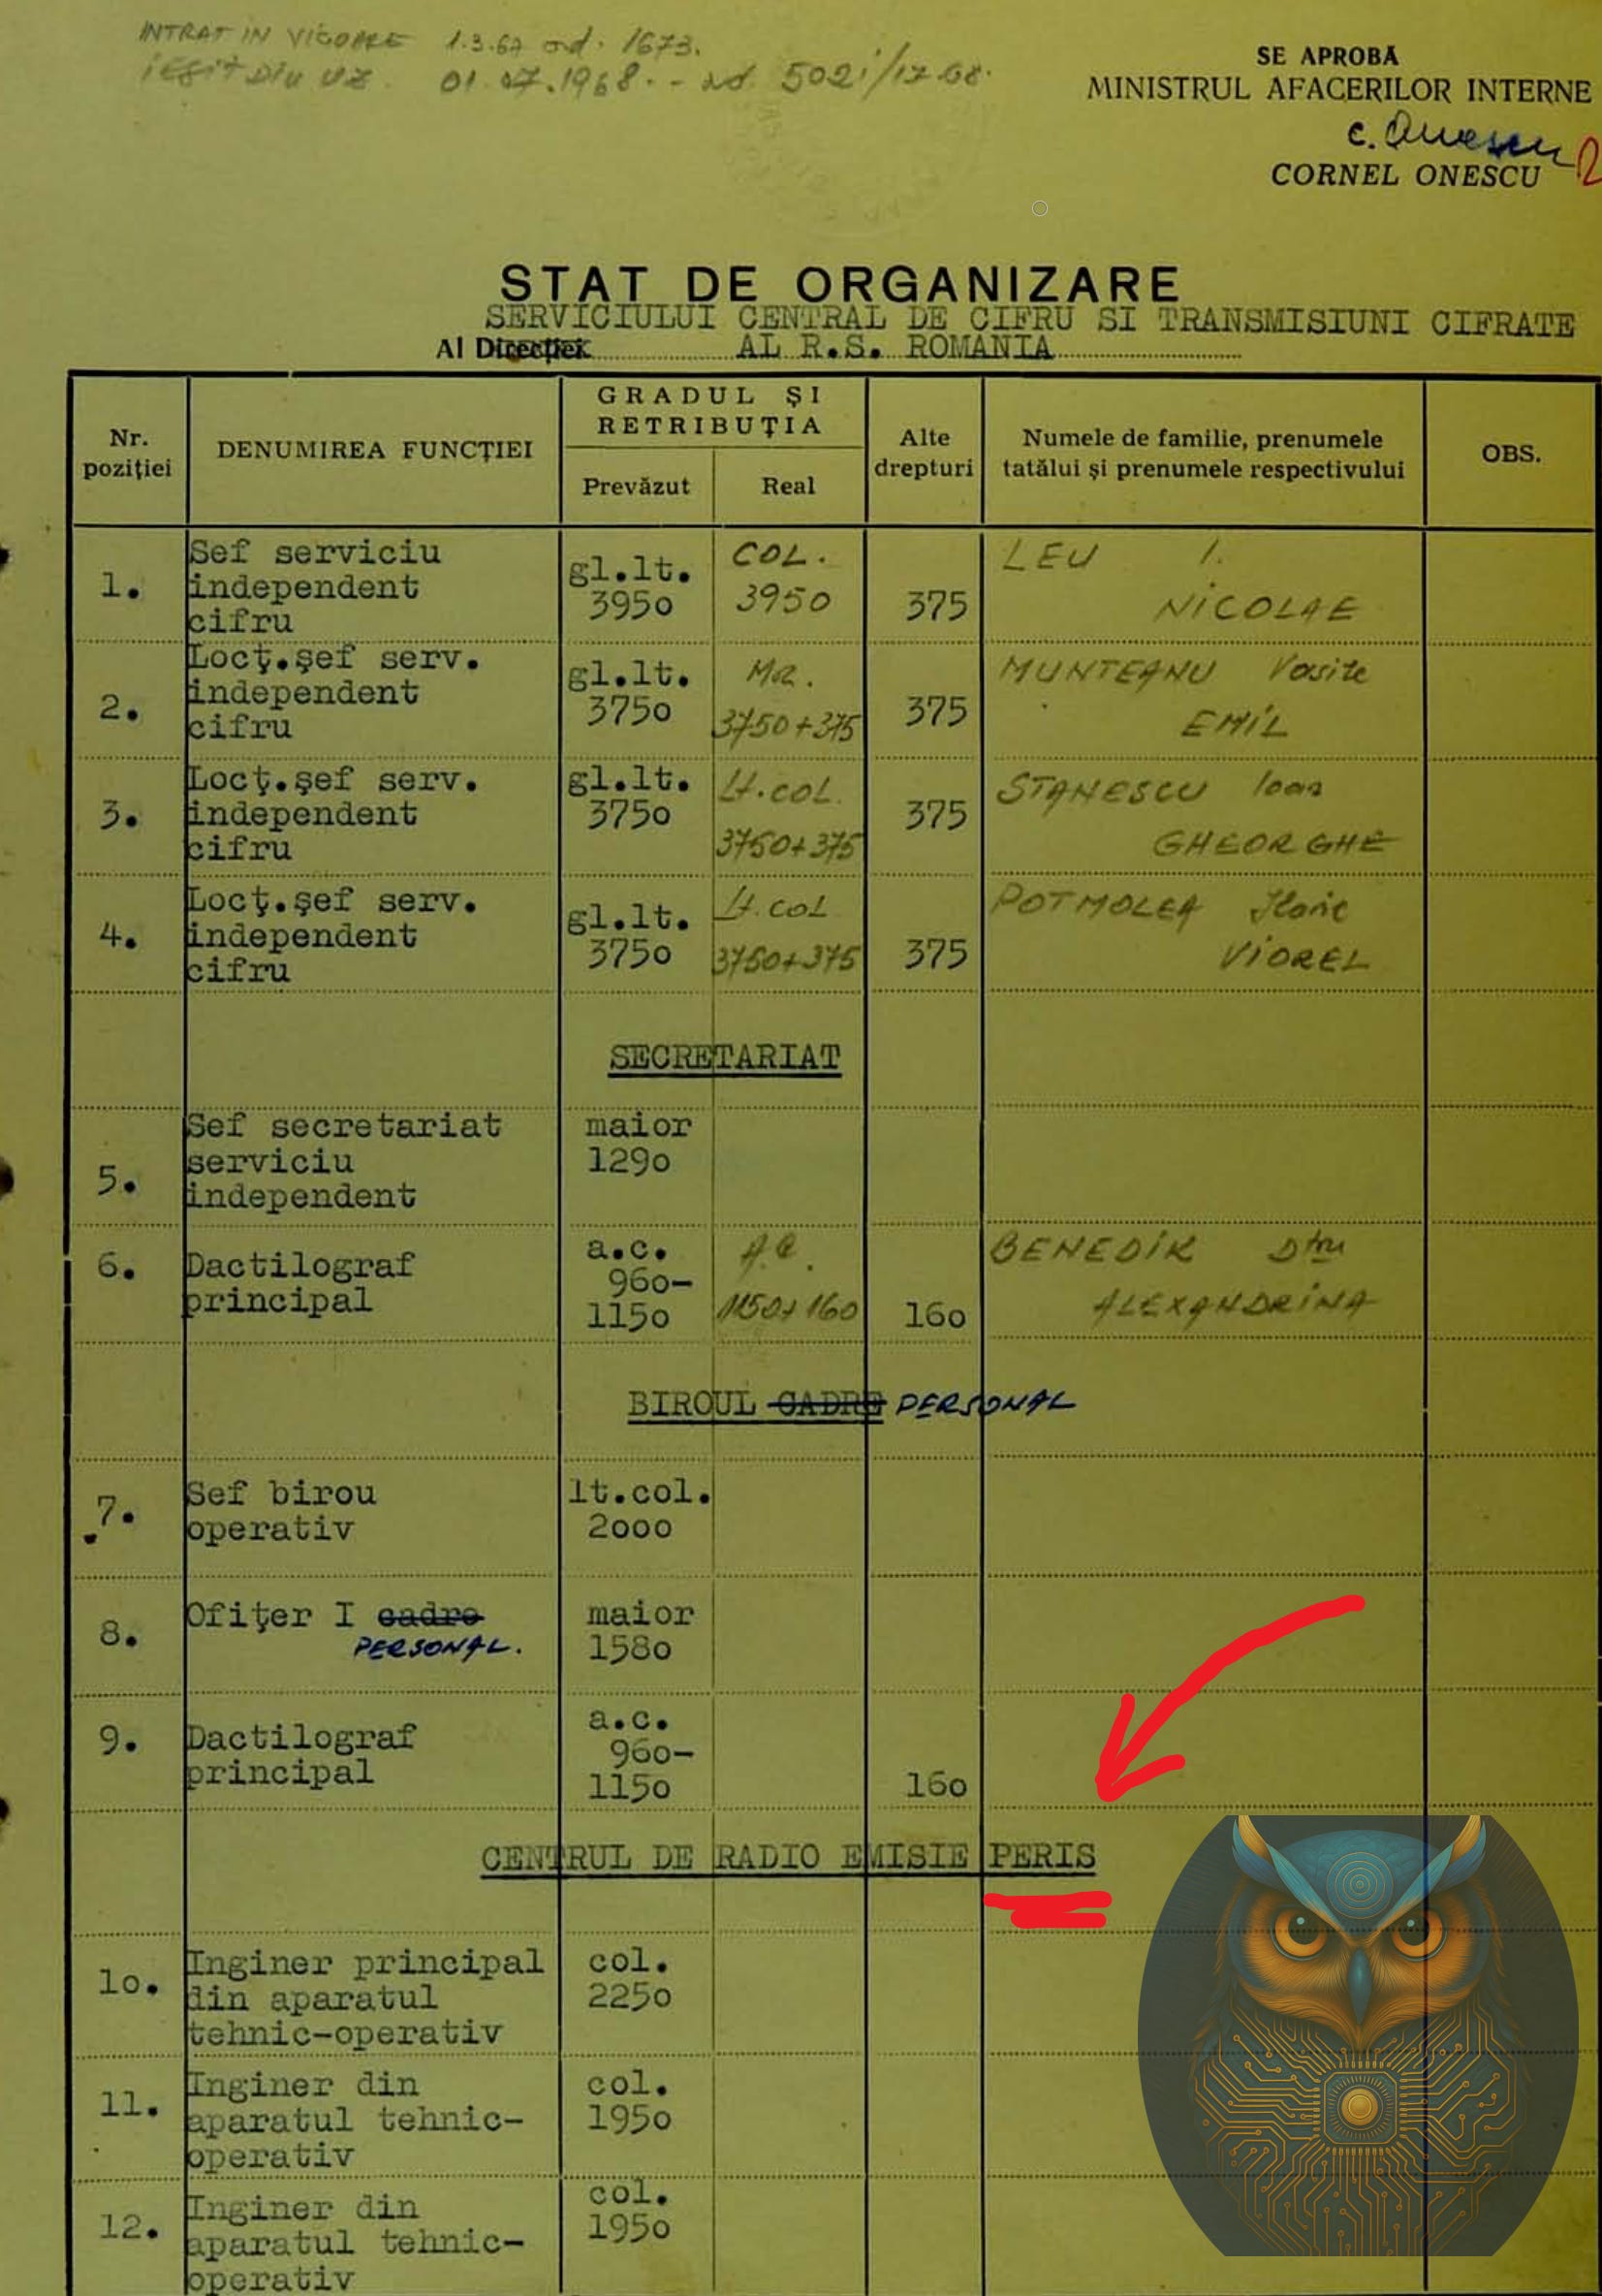 INTRAT IN VIGOARE 1.3.67 od. 1673.
IEȘIT DIN UZ. 01.07.1968. - od. 5021/17.68.
SE APROBĂ
MINISTRUL AFACERILOR INTERNE
C. Onescu
CORNEL ONESCU
STAT DE ORGANIZARE
SERVICIULUI CENTRAL DE CIFRU SI TRANSMISIUNI CIFRATE
Al Direcției AL R.S. ROMANIA
Nr. poziției
DENUMIREA FUNCȚIEI
GRADUL ȘI RETRIBUȚIA
Prevăzut
Real
Alte drepturi
Numele de familie, prenumele tatălui și prenumele respectivului
OBS.
1. Sef serviciu independent cifru gl.lt. 3950 COL. 3950 375 LEU I. NICOLAE
2. Locţ.şef serv. independent cifru gl.lt. 3750 MR. 3750+375 375 MUNTEANU Vasile EMIL
3. Locţ.şef serv. independent cifru gl.lt. 3750 Lt.COL. 3750+375 375 STANESCU Ioan GHEORGHE
4. Locţ.şef serv. independent cifru gl.lt. 3750 Lt.COL 3750+375 375 POTMOLEA Ilarie VIOREL
SECRETARIAT
5. Sef secretariat serviciu independent maior 1290
6. Dactilograf principal a.c. 960-1150 A.C. 1150+160 160 BENEDIK Dtru ALEXANDRINA
BIROUL CADRE PERSONAL
7. Sef birou operativ lt.col. 2000
8. Ofiţer I cadre PERSONAL. maior 1580
9. Dactilograf principal a.c. 960-1150 160
CENTRUL DE RADIO EMISIE PERIS
10. Inginer principal din aparatul tehnic-operativ col. 2250
11. Inginer din aparatul tehnic-operativ col. 1950
12. Inginer din aparatul tehnic-operativ col. 1950